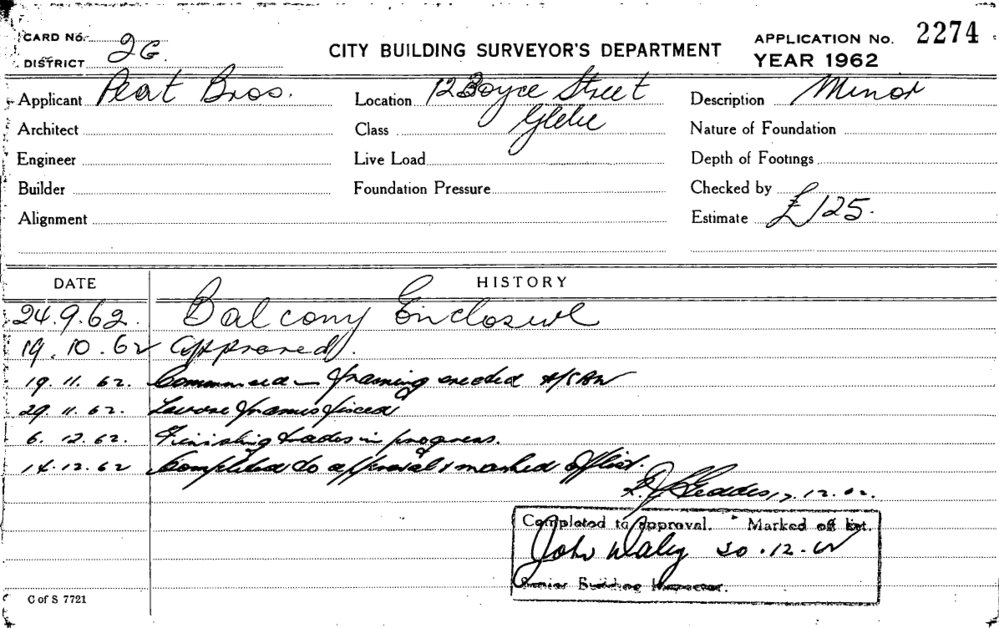 CARD No. 2G
DISTRICT
CITY BUILDING SURVEYOR'S DEPARTMENT
APPLICATION No. 2274
YEAR 1962
Applicant Peat Bros.
Location 12 Boyce Street
Glebe
Description Minor
Architect
Class
Nature of Foundation
Engineer
Live Load
Depth of Footings
Builder
Foundation Pressure
Checked by
Alignment
Estimate £125.
DATE HISTORY
24.9.62. Balcony Enclosure
19.10.62 Approved.
19.11.62. Commenced framing erected
29.11.62. Louvre frames fixed
6.12.62. Finishing trades in progress.
14.12.62 Completed to approval & marked off list.
Geddes 17.12.62.
Completed to approval. Marked off list.
John Daley 20.12.62
Senior Building Inspector.
C of S 7721